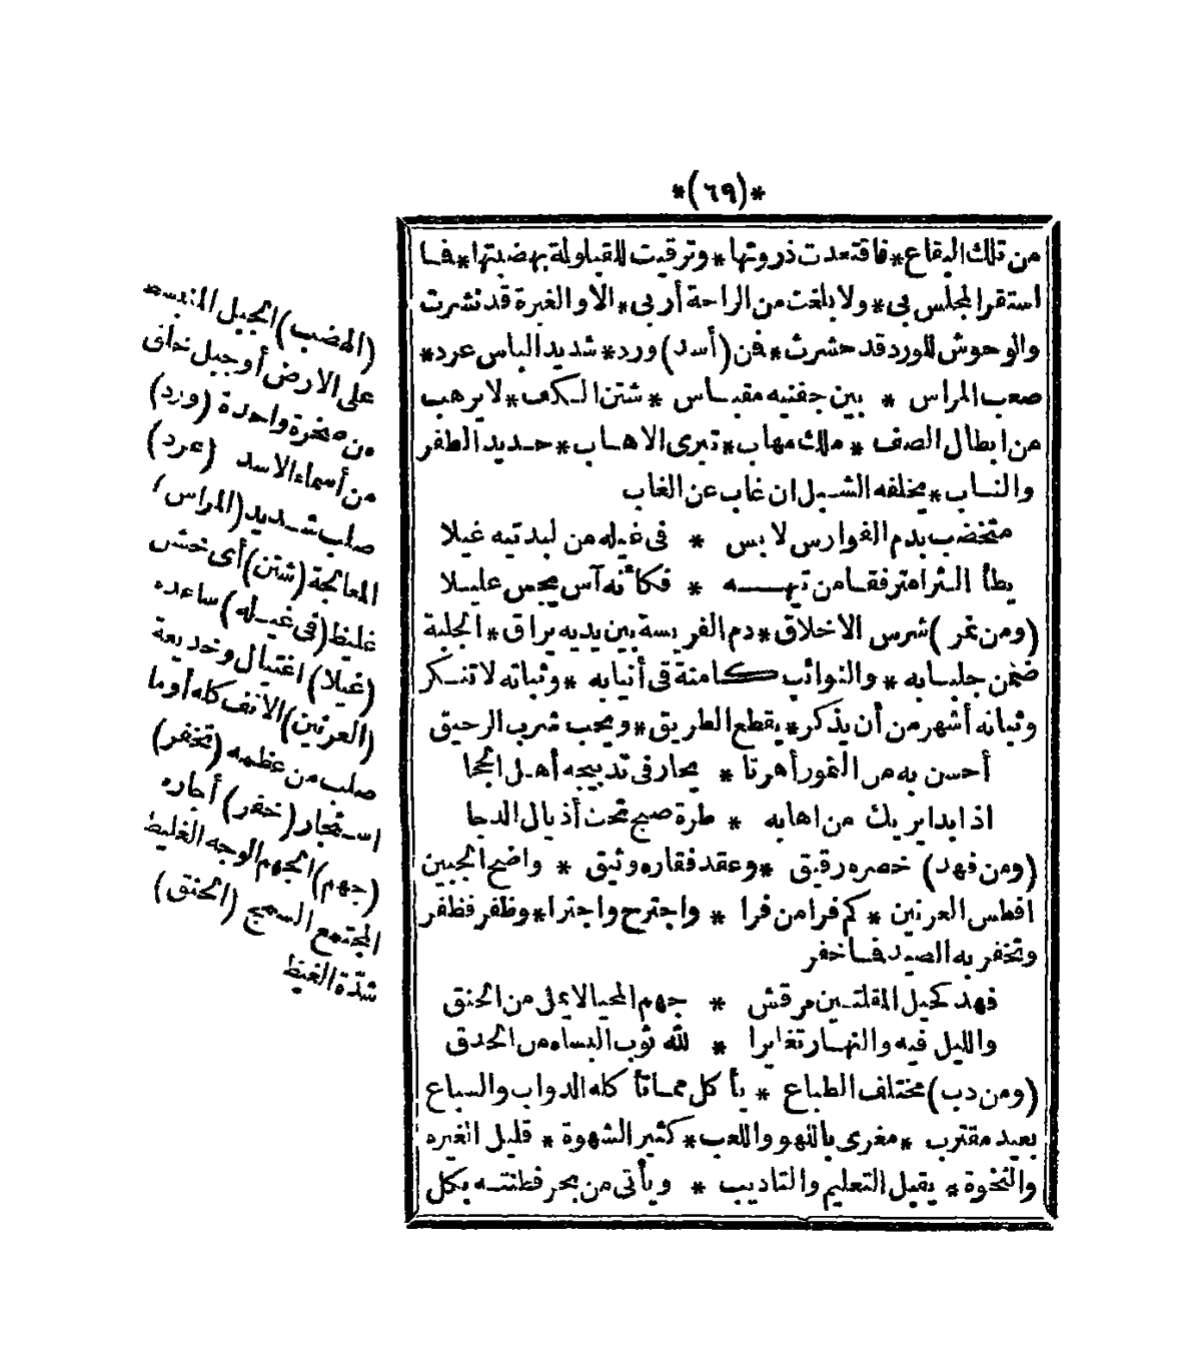 *(٦٩)*
من تلك البقاع*فاقتعدت ذروتها*وترقيت للقيلولة بهضبتها*فما
استقر المجلس بي*ولا بلغت من الراحة أربي*الا والغبرة قد نشرت
والوحوش للورد قد حشرت*فمن (أسد) ورد*شديد الباس عرد*
صعب المراس * بين جفنيه مقباس * شثن الكف*لا يرهب
من ابطال الصف * ملك مهاب*تبرى الاهاب*حديد الظفر
والناب*يخلفه الشبل ان غاب عن الغاب
متخضب بدم الفوارس لابس * في غيله من لبدتيه غيلا
يطأ الثرا مترفقا من تيهه * فكأنه آس يجس عليلا
(ومن نمر) شرس الاخلاق*دم الفريسة بين يديه يراق*الجلبة
ضمن جلبابه * والنوائب كامنة في أنيابه * وثباته لا تنكر
وثباته أشهر من أن يذكر*يقطع الطريق*ويحب شرب الرحيق
أحسن به من النمور أهرتا * يحار في تدبيجه أهل الحجا
اذا بدا يريك من اهابه * طرة صبح تحت أذيال الدجا
(ومن فهد) خصره رقيق *وعقد فقاره وثيق * واضح الجبين
افطس العرنين * كم فرا من فرا * واجترح واجترا*وظفر فظفر
وتخفر به الصيد فما خفر
فهد كحيل المقلتين مرقش * جهم المحيا لا يملى من الحنق
والليل فيه والنهار تغايرا * لله ثوب البساه من الحدق
(ومن دب) مختلف الطباع * يأكل مما تأكله الدواب والسباع
بعيد مقترب *مغرى باللهو واللعب*كثير الشهوة * قليل الغيره
والنخوة* يقبل التعليم والتاديب * ويأتى من بحر فطنته بكل
(الهضب) الجبل المنبسط
على الارض أو جبل خلق
من صخرة واحدة (ورد)
من أسماء الاسد (عرد)
صلب شديد (المراس)
المعالجة (شثن) أى خشن
غليظ (في غيله) ساعده
(غيلا) اغتيال وخديعة
(العرنين) الانف كله أو ما
صلب من عظمه (تخفر)
استجار (خفر) أجاره
(جهم) الجهم الوجه الغليظ
المجتمع السمج (الحنق)
شدة الغيظ